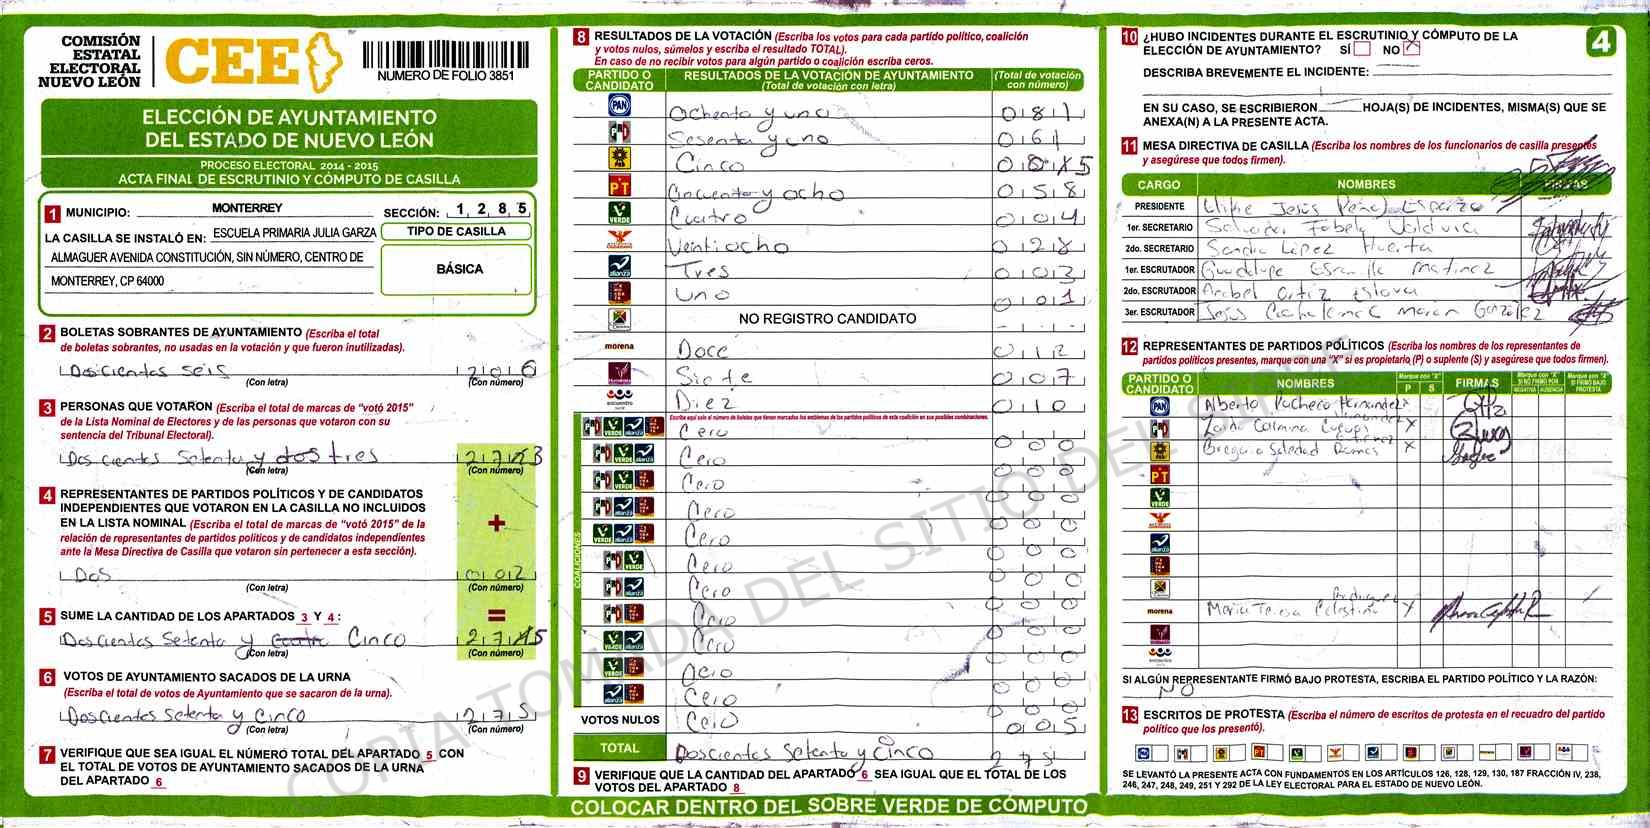 COMISIÓN
ESTATAL
ELECTORAL
NUEVO LEÓN
CEE
NUMERO DE FOLIO 3851
ELECCIÓN DE AYUNTAMIENTO
DEL ESTADO DE NUEVO LEÓN
PROCESO ELECTORAL 2014 - 2015
ACTA FINAL DE ESCRUTINIO Y CÓMPUTO DE CASILLA
1 MUNICIPIO: MONTERREY SECCIÓN: 1 2 8 5
LA CASILLA SE INSTALÓ EN: ESCUELA PRIMARIA JULIA GARZA
ALMAGUER AVENIDA CONSTITUCIÓN, SIN NÚMERO, CENTRO DE
MONTERREY, CP 64000
TIPO DE CASILLA
BÁSICA
2 BOLETAS SOBRANTES DE AYUNTAMIENTO (Escriba el total
de boletas sobrantes, no usadas en la votación y que fueron inutilizadas).
Doscientos seis 206
(Con letra) (Con número)
3 PERSONAS QUE VOTARON (Escriba el total de marcas de “votó 2015”
de la Lista Nominal de Electores y de las personas que votaron con su
sentencia del Tribunal Electoral).
Dos cientos Setenta y dos tres 27 3
(Con letra) (Con número)
4 REPRESENTANTES DE PARTIDOS POLÍTICOS Y DE CANDIDATOS
INDEPENDIENTES QUE VOTARON EN LA CASILLA NO INCLUIDOS
EN LA LISTA NOMINAL (Escriba el total de marcas de “votó 2015” de la
relación de representantes de partidos políticos y de candidatos independientes
ante la Mesa Directiva de Casilla que votaron sin pertenecer a esta sección).
+
Dos 002
(Con letra) (Con número)
5 SUME LA CANTIDAD DE LOS APARTADOS 3 Y 4:
=
Doscientos Setenta y Cinco 27 5
(Con letra) (Con número)
6 VOTOS DE AYUNTAMIENTO SACADOS DE LA URNA
(Escriba el total de votos de Ayuntamiento que se sacaron de la urna).
Doscientos Setenta y Cinco 275
(Con letra) (Con número)
7 VERIFIQUE QUE SEA IGUAL EL NÚMERO TOTAL DEL APARTADO 5 CON
EL TOTAL DE VOTOS DE AYUNTAMIENTO SACADOS DE LA URNA
DEL APARTADO 6
8 RESULTADOS DE LA VOTACIÓN (Escriba los votos para cada partido político, coalición
y votos nulos, súmelos y escriba el resultado TOTAL).
En caso de no recibir votos para algún partido o coalición escriba ceros.
PARTIDO O
CANDIDATO
RESULTADOS DE LA VOTACIÓN DE AYUNTAMIENTO
(Total de votación con letra)
(Total de votación
con número)
PAN Ochenta y uno 081
PRI Sesenta y uno 061
PRD Cinco 5
PT Cincuenta y ocho 058
VERDE Cuatro 004
Veintiocho 028
alianza Tres 003
Uno 001
NO REGISTRO CANDIDATO - - -
morena Doce 012
Siete 007
encuentro Diez 010
Escriba aquí solo el número de boletas que tienen marcados los emblemas de los partidos políticos de esta coalición en sus posibles combinaciones.
COALICIONES
Cero 0 0 0
Cero 0 0 0
Cero 0 0 0
Cero 0 0 0
Cero 0 0 0
Cero 0 0 0
Cero 0 0 0
Cero 0 0 0
Cero 0 0 0
Cero 0 0 0
Cero 0 0 0
VOTOS NULOS Cero 005
TOTAL Doscientos Setenta y Cinco 275
9 VERIFIQUE QUE LA CANTIDAD DEL APARTADO 6 SEA IGUAL QUE EL TOTAL DE LOS
VOTOS DEL APARTADO 8
COLOCAR DENTRO DEL SOBRE VERDE DE CÓMPUTO
10 ¿HUBO INCIDENTES DURANTE EL ESCRUTINIO Y CÓMPUTO DE LA
ELECCIÓN DE AYUNTAMIENTO? SÍ NO X
4
DESCRIBA BREVEMENTE EL INCIDENTE:
EN SU CASO, SE ESCRIBIERON HOJA(S) DE INCIDENTES, MISMA(S) QUE SE
ANEXA(N) A LA PRESENTE ACTA.
11 MESA DIRECTIVA DE CASILLA (Escriba los nombres de los funcionarios de casilla presentes
y asegúrese que todos firmen).
CARGO NOMBRES
PRESIDENTE Jesús Peña Esparza
1er. SECRETARIO Salvador Fabela
2do. SECRETARIO Sandra López Huerta
1er. ESCRUTADOR Guadalupe Martinez
2do. ESCRUTADOR Ortiz
3er. ESCRUTADOR Jesús González
12 REPRESENTANTES DE PARTIDOS POLÍTICOS (Escriba los nombres de los representantes de
partidos políticos presentes, marque con una “X” si es propietario (P) o suplente (S) y asegúrese que todos firmen).
PARTIDO O
CANDIDATO
NOMBRES
Marque con “X”
P S
FIRMAS
Marque con “X”
SI NO FIRMÓ POR
NEGATIVA AUSENCIA
Marque con “X”
SI FIRMÓ BAJO
PROTESTA
PAN Alberto Pacheco Hernandez X
PRI X
PRD Gregorio Soledad Ramos X
PT
VERDE
alianza
morena Maria Teresa X
encuentro
SI ALGÚN REPRESENTANTE FIRMÓ BAJO PROTESTA, ESCRIBA EL PARTIDO POLÍTICO Y LA RAZÓN:
NO
13 ESCRITOS DE PROTESTA (Escriba el número de escritos de protesta en el recuadro del partido
político que los presentó).
SE LEVANTÓ LA PRESENTE ACTA CON FUNDAMENTOS EN LOS ARTÍCULOS 126, 128, 129, 130, 187 FRACCIÓN IV, 238,
246, 247, 248, 249, 251 Y 292 DE LA LEY ELECTORAL PARA EL ESTADO DE NUEVO LEÓN.
COPIA TOMADA DEL SITIO DEL SIPRE